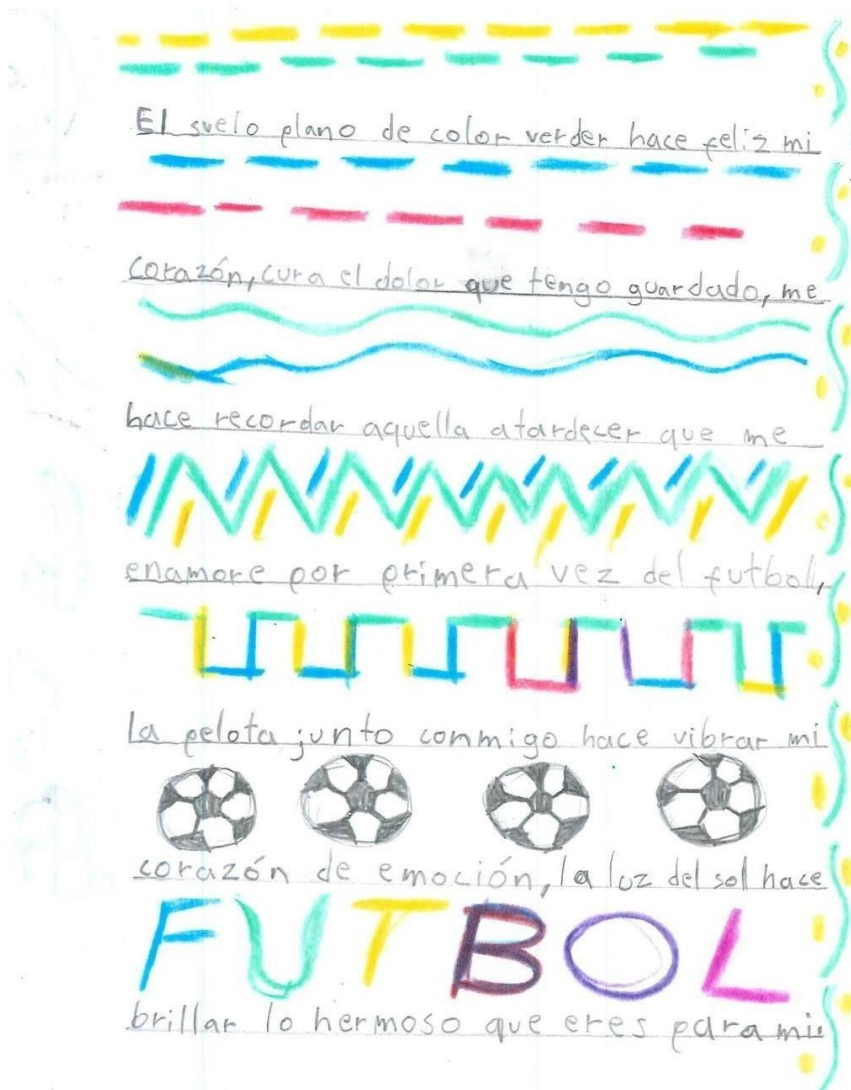 El suelo plano de color verder hace feliz mi
corazón, cura el dolor que tengo guardado, me
hace recordar aquella atardecer que me
enamore por primera vez del futbol,
la pelota junto conmigo hace vibrar mi
corazón de emoción, la luz del sol hace
FUTBOL
brillar lo hermoso que eres para mi.